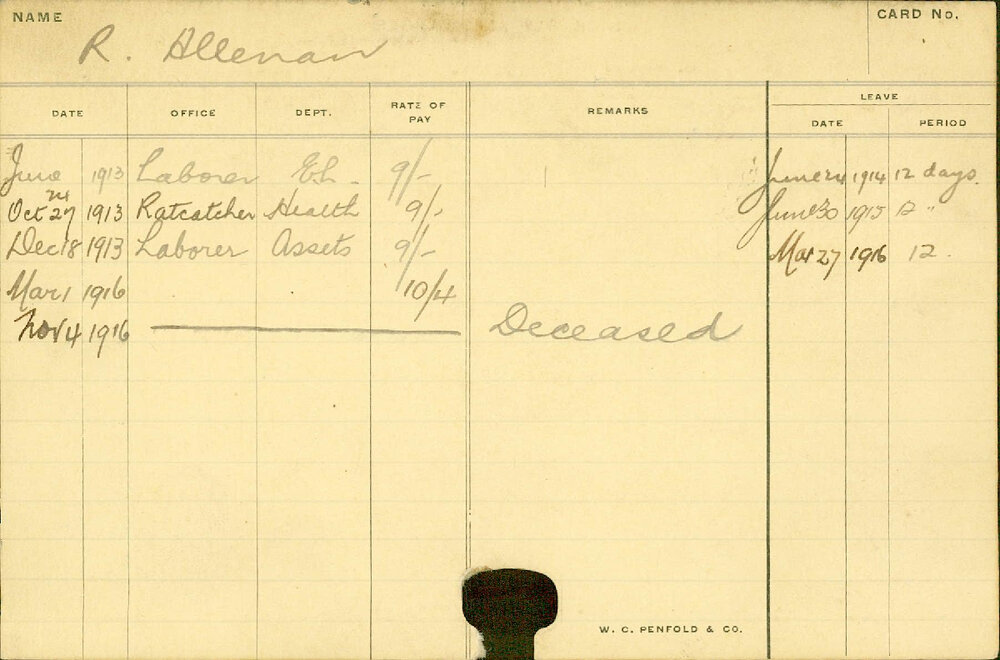 NAME
CARD No.
R. Allenan
DATE OFFICE DEPT. RATE OF PAY REMARKS LEAVE
DATE PERIOD
June 1913 Laborer E.L. 9/- June 24 1914 12 days.
Oct 27 1913 Ratcatcher Health 9/- June 30 1915 12 "
Dec 18 1913 Laborer Assets 9/- Mar 27 1916 12.
Mar 1 1916 10/4
Nov 4 1916 Deceased
W. C. PENFOLD & CO.